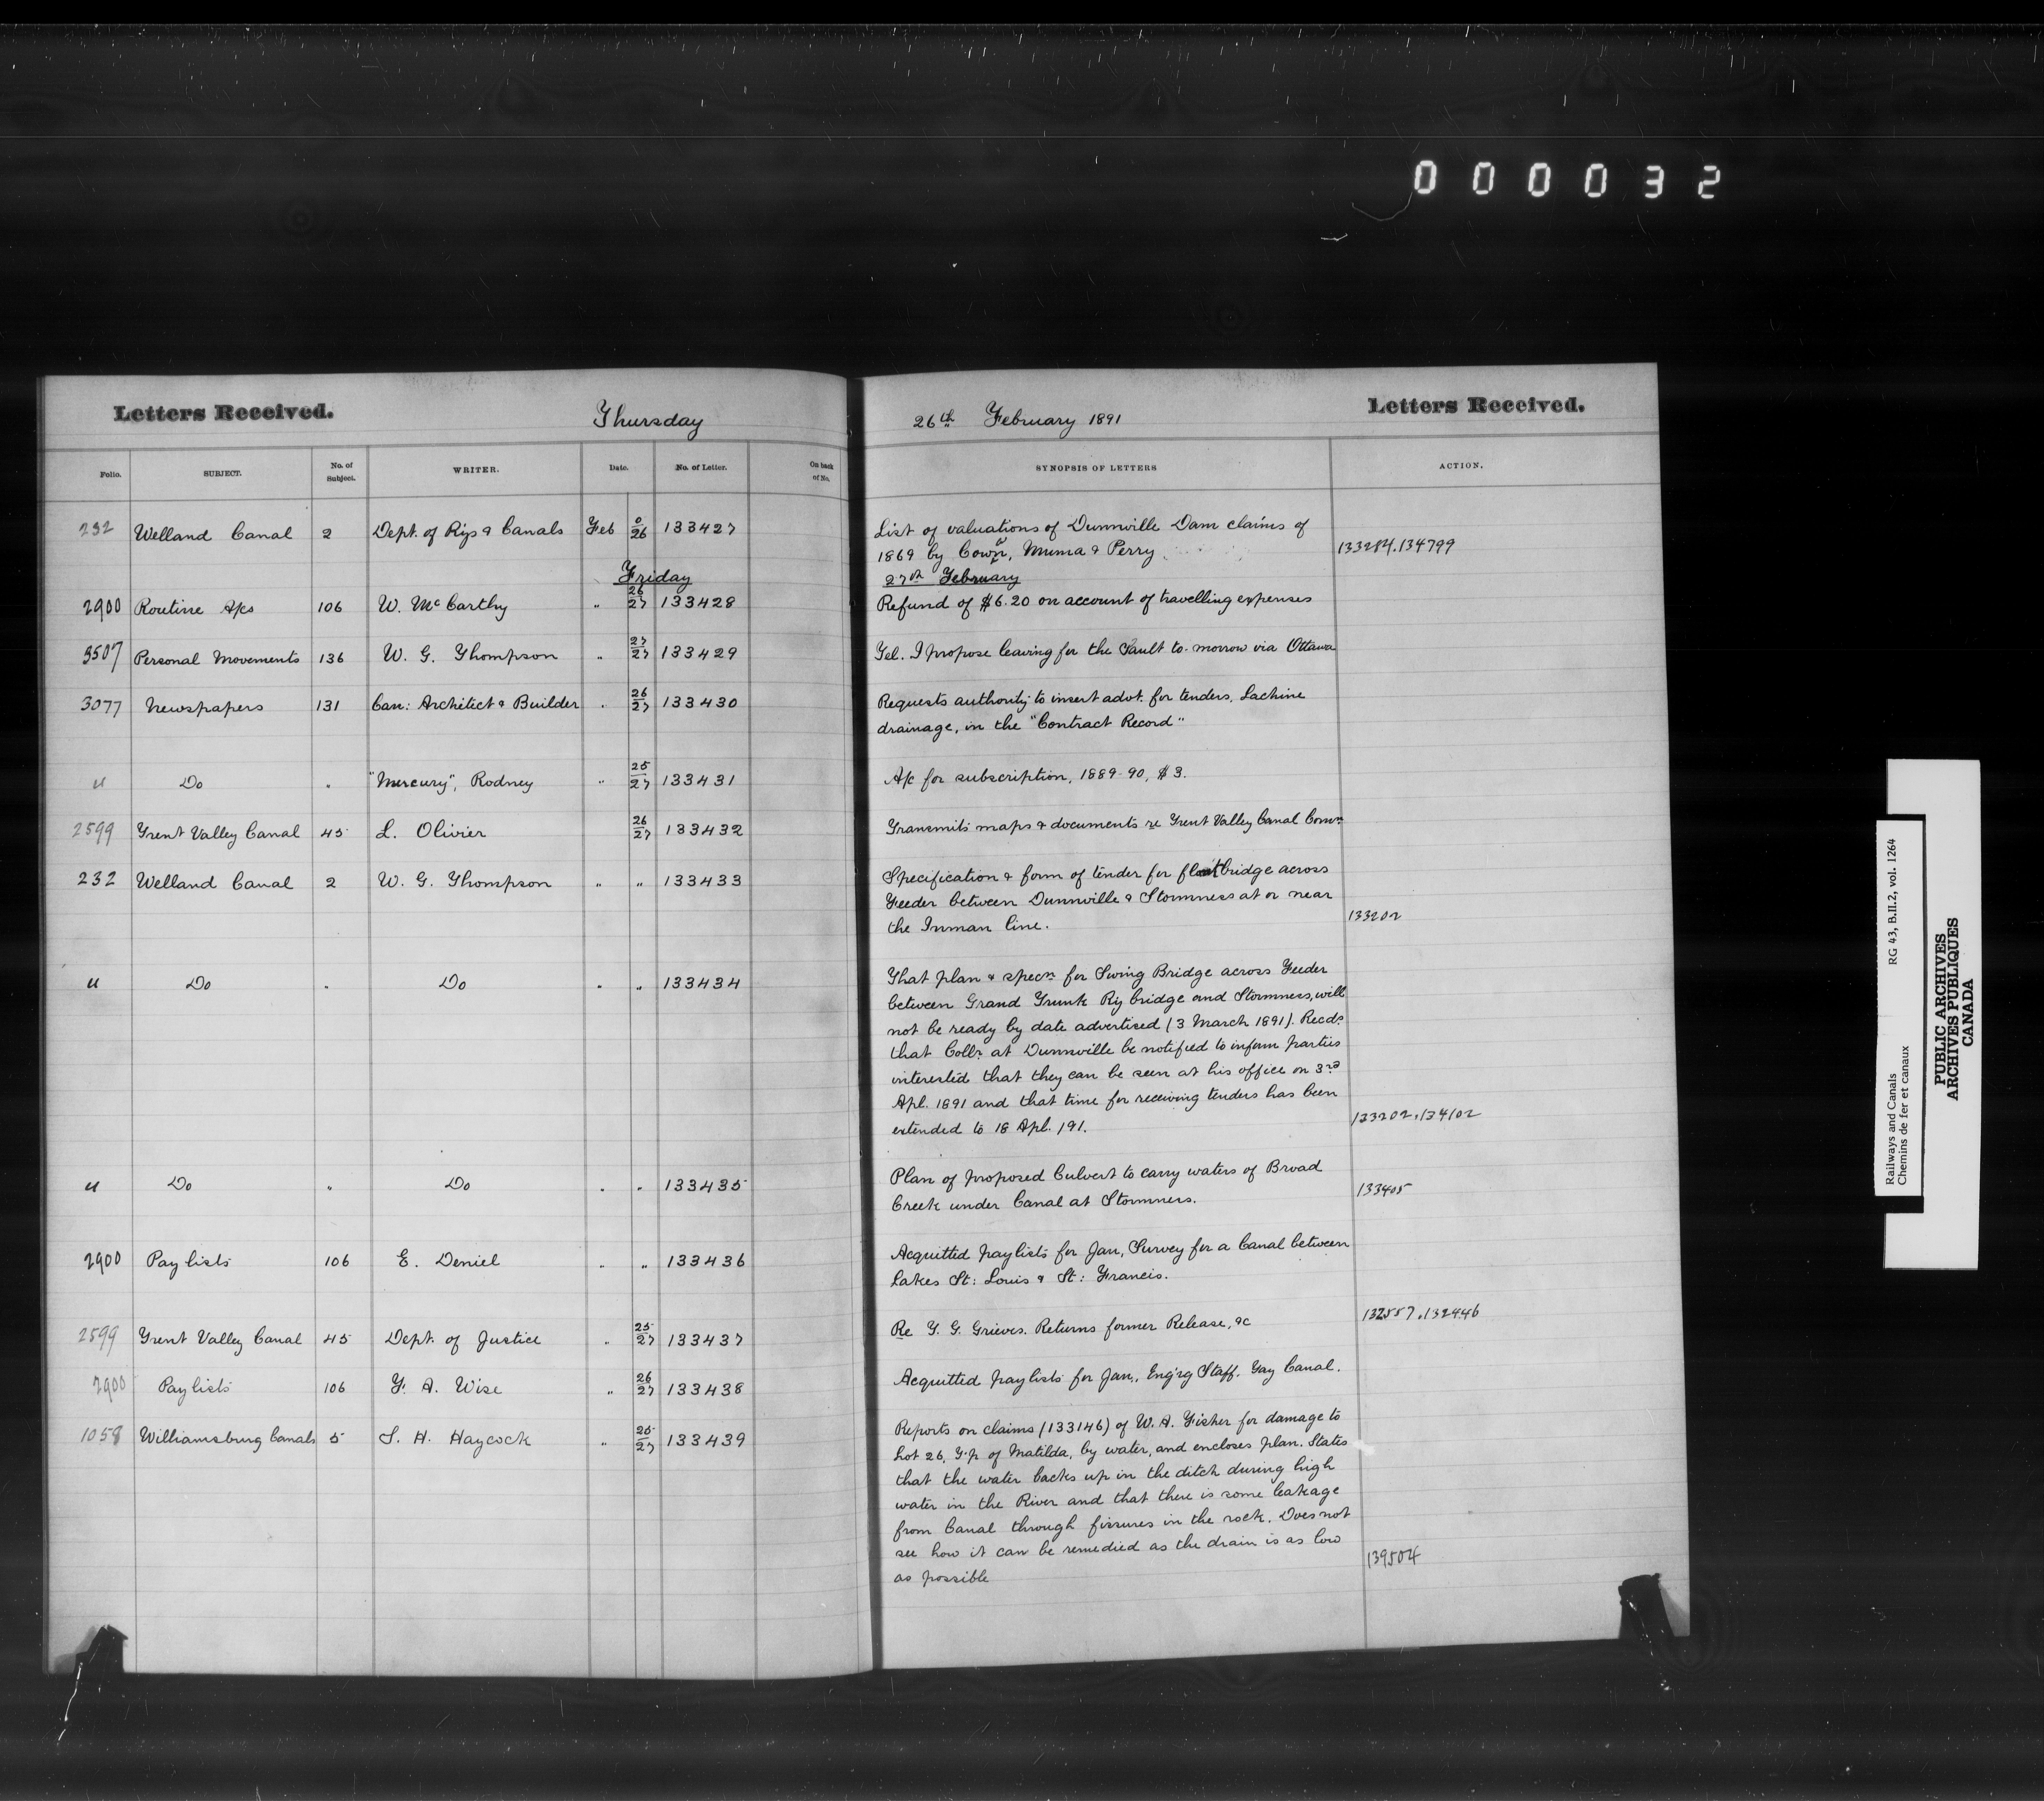 000032
Letters Received. Thursday
26th February 1891 Letters Received.
Folio. SUBJECT. No. of Subject. WRITER. Date. No. of Letter. On back of No. SYNOPSIS OF LETTERS ACTION.
232 Welland Canal 2 Dept. of Rys & Canals Feb 0/26 133427 List of valuations of Dunnville Dam claims of
1869 by Cowan, Muma & Perry 133284.134799
Friday 27th February
2900 Routine A/cs 106 W. McCarthy " 26/27 133428 Refund of $6.20 on account of travelling expenses
3507 Personal Movements 136 W. G. Thompson " 27/27 133429 Tel. I propose leaving for the Sault to-morrow via Ottawa
3077 Newspapers 131 Can: Architect & Builder " 26/27 133430 Requests authority to insert advt. for tenders, Lachine
drainage, in the "Contract Record"
" Do " "Mercury", Rodney " 25/27 133431 A/c for subscription, 1889-90, $3.
2599 Trent Valley Canal 45 L. Olivier 26/27 133432 Transmits maps & documents re Trent Valley Canal Comn
232 Welland Canal 2 W. G. Thompson " " 133433 Specification & form of tender for float bridge across
Feeder between Dunnville & Stromness at or near
the Inman line. 133202
" Do " Do " " 133434 That plan & specn for Swing Bridge across Feeder
between Grand Trunk Ry bridge and Stromness, will
not be ready by date advertised (3 March 1891). Recds
that Collr at Dunnville be notified to inform parties
interested that they can be seen at his office on 3rd
Apl. 1891 and that time for receiving tenders has been
extended to 18 Apl. /91. 133202.134102
" Do " Do " " 133435 Plan of proposed Culvert to carry waters of Broad
Creek under Canal at Stromness. 133405
2900 Pay lists 106 E. Deniel " " 133436 Acquitted pay lists for Jan, Survey for a Canal between
Lakes St: Louis & St: Francis.
2599 Trent Valley Canal 45 Dept. of Justice " 25/27 133437 Re T. G. Grieves. Returns former Release, &c 132557.132446
2900 Pay lists 106 T. A. Wise " 26/27 133438 Acquitted pay lists for Jan., Eng'rg Staff. Tay Canal.
1058 Williamsburg Canals 5 S. H. Haycock " 25/27 133439 Reports on claims (133146) of W. A. Fisher for damage to
Lot 26, T'p of Matilda, by water, and encloses plan. States
that the water backs up in the ditch during high
water in the River and that there is some leakage
from Canal through fissures in the rock. Does not
see how it can be remedied as the drain is as low
as possible 139504
Railways and Canals RG 43, B.II.2, vol. 1264
Chemins de fer et canaux
PUBLIC ARCHIVES
ARCHIVES PUBLIQUES
CANADA